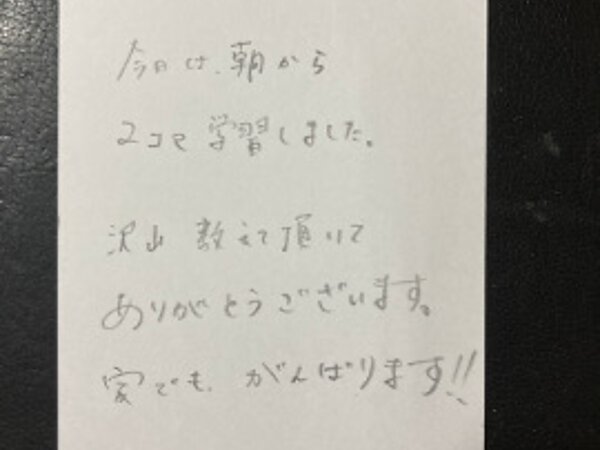 今日は、朝から
2コマ学習しました。
沢山教えて頂いて
ありがとうございます。
家でも、がんばります!!